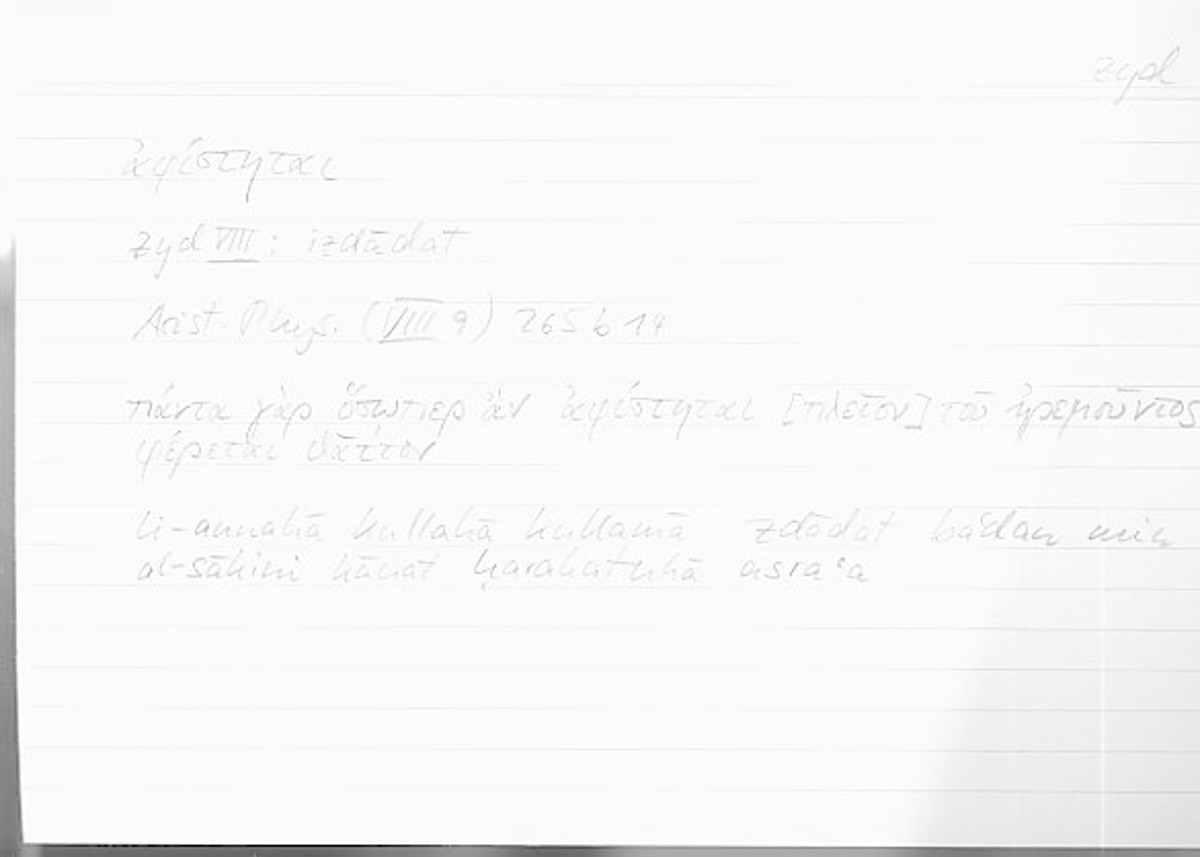 zyd
ἀφίστηται
zyd VIII: izdādat
Arist. Phys. (VIII 9) 265 b 14
πάντα γὰρ ὅσῳπερ ἂν ἀφίστηται [πλεῖον] τοῦ ἠρεμοῦντος
φέρεται θᾶττον
li-annahā kullahā kullamā zdādat baʿdan min
al-sākini kānat ḥarakatuhā asraʿa